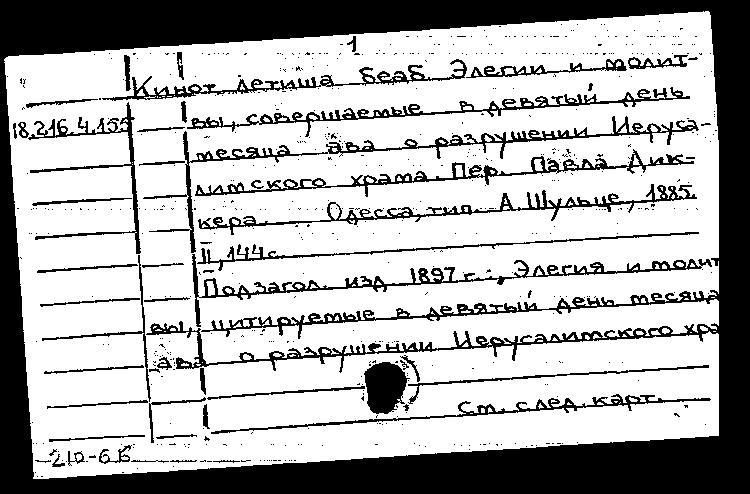 1
Кинот летиша беаб Элегии и молит-
18.216.4.155 вы, совершаемые в девятый день
месяца ава о разрушении Иеруса-
лимского храма. Пер. Павла Дик-
кера. Одесса, тип. А. Шульце, 1885.
II, 144 с.
Подзагол. изд 1897 г.: „Элегия и молит
вы, цитируемые в девятый день месяца
ава о разрушении Иерусалимского хра
См. след. карт.
210-6Б